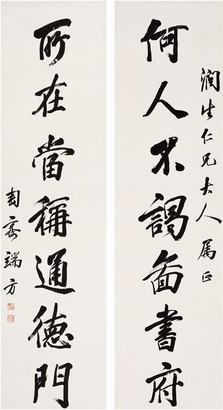 潤生仁兄大人屬正
何人不謁圖書府
所在當稱通德門
匋齋端方